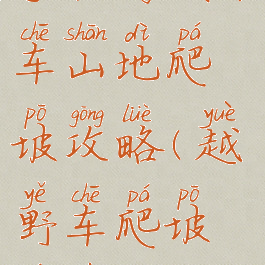 chē shān dì pá
车山地爬
pō gōng lüè yuè
坡攻略(越
yě chē pá pō
野车爬坡